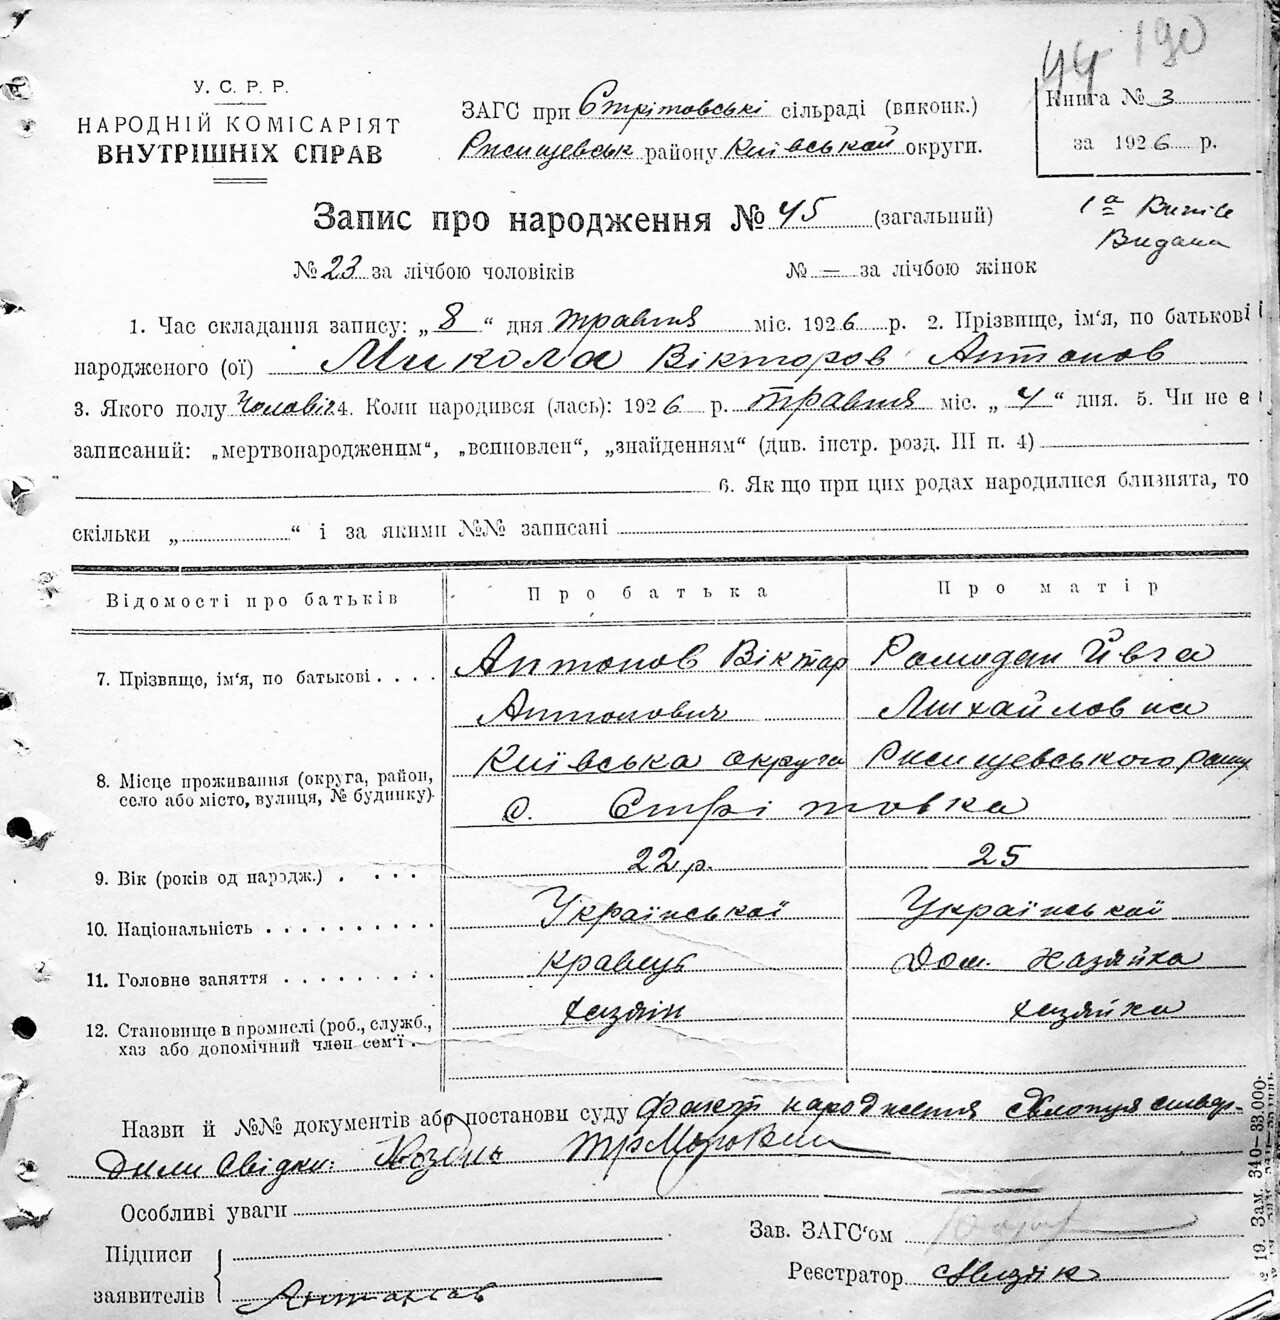 44 190
У. С. Р. Р.
НАРОДНІЙ КОМІСАРІЯТ
ВНУТРІШНІХ СПРАВ
ЗАГС при Стрітовські сільраді (виконк.)
Ржищевськ району Київської округи.
Книга № 3
за 1926 р.
Запис про народження № 45 (загальний)
1а Виписв
Видана
№ 23 за лічбою чоловіків № — за лічбою жінок
1. Час складання запису: „ 8 “ дня травня міс. 1926 р. 2. Прізвище, ім‘я, по батькові
народженого (ої) Микола Вікторов Антонов
3. Якого полу Чоловіч. 4. Коли народився (лась): 1926 р. травня міс. „ 4 “ дня. 5. Чи не є
записаний: „мертвонародженим“, „всиновлен“, „знайденням“ (див. інстр. розд. III п. 4)
6. Як що при цих родах народилися близнята, то
скільки „ “ і за якими №№ записані
Відомості про батьків Про батька Про матір
7. Прізвище, ім‘я, по батькові . . . . Антонов Віктор Ромодан Йвга
Антонович Михайловна
8. Місце проживання (округа, район, село або місто, вулиця, № будинку) Київська округа Ржищевського рану
с. Стрітовка
9. Вік (років од народж.) . . . . 22 р. 25
10. Національність . . . . . . . . . . Української Української
11. Головне заняття . . . . . . . . Кравець Дом. Хазяйка
12. Становище в промислі (роб., служб., хаз або допомічний член сем‘ї . хазяїн хазяйка
Назви й №№ документів або постанови суду Факт народження хлопця ствер-
дили Свідки:
Особливі уваги
Підписи
заявителів Антонов
Зав. ЗАГС‘ом
Реєстратор
19. Зам. 340—33,000.